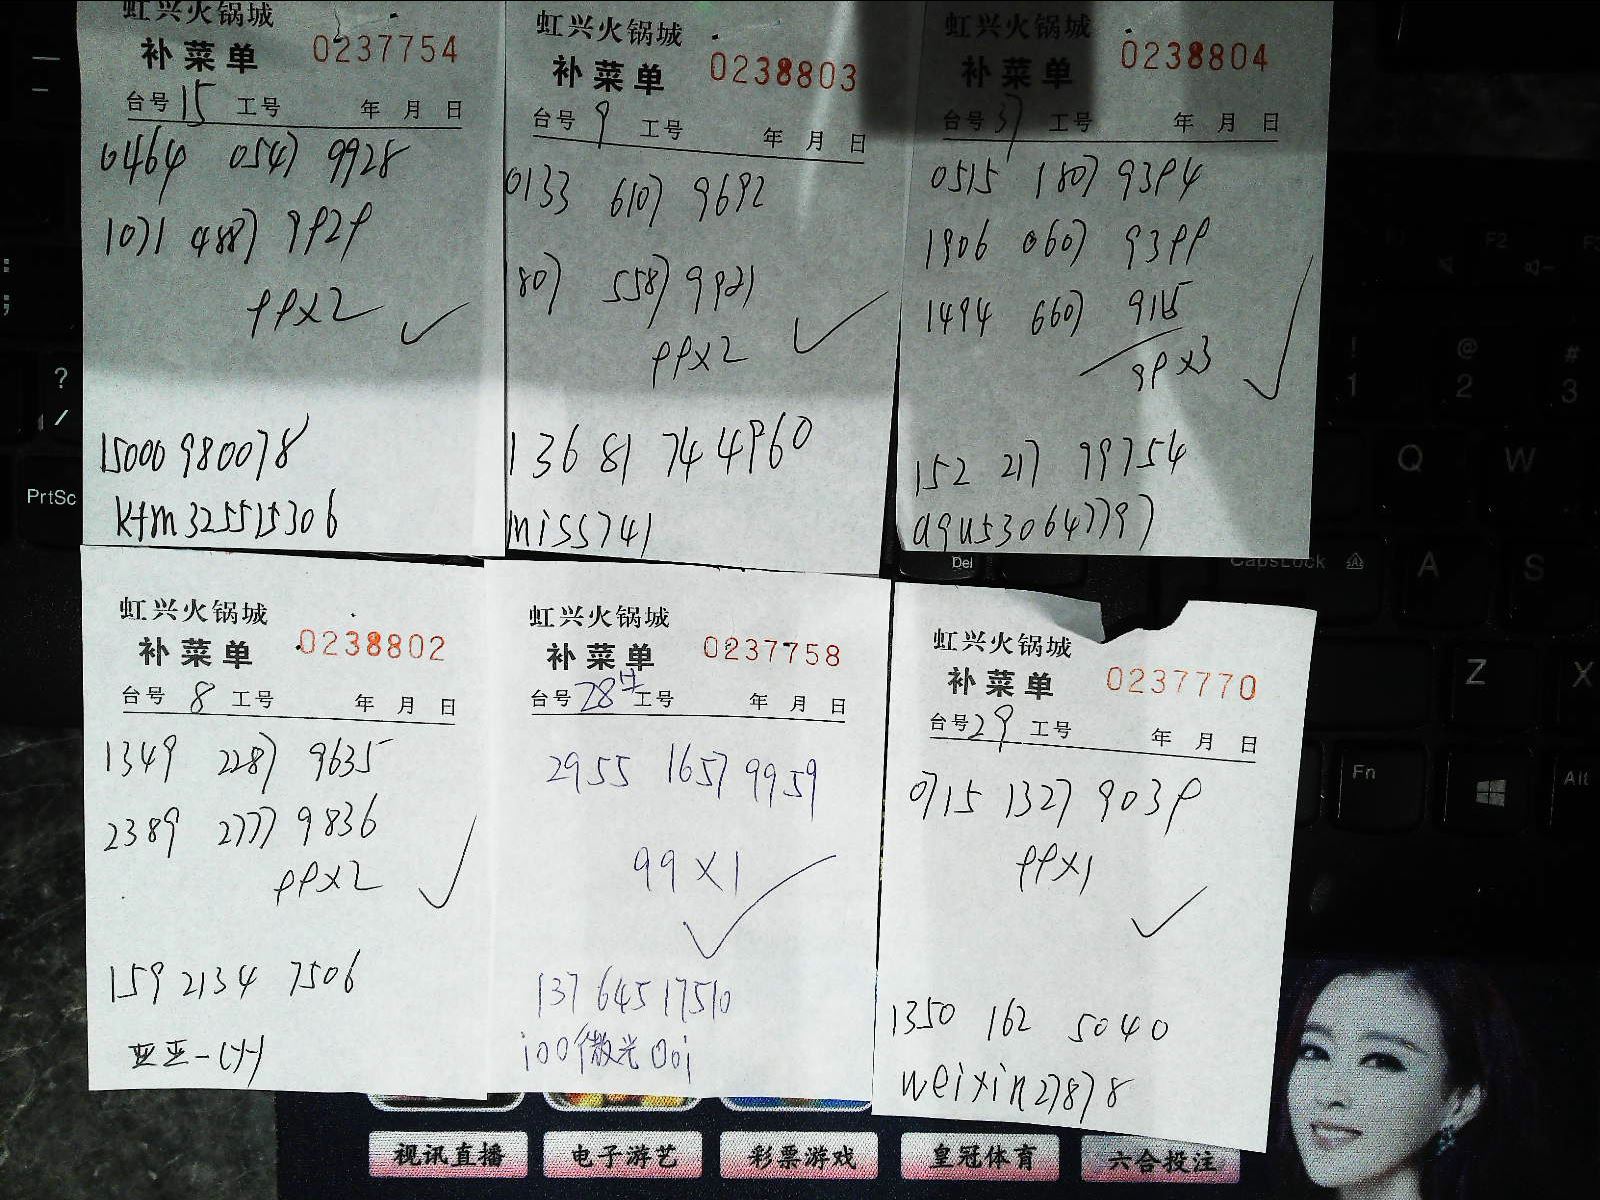 虹兴火锅城
补菜单 0237754
台号 15 工号 年 月 日
0464 0547 9928
1071 4887 9929
99X2
15000980078
ktm325515306
虹兴火锅城
补菜单 0238803
台号 9 工号 年 月 日
0133 6107 9692
1807 5587 9921
99X2
136 81 744960
miss741
虹兴火锅城
补菜单 0238804
台号 37 工号 年 月 日
0515 1807 9394
1906 0607 9399
1494 6607 9115
99X3
152 217 99754
虹兴火锅城
补菜单 0238802
台号 8 工号 年 月 日
1349 2287 9635
2389 2777 9836
99X2
159 2134 7506
虹兴火锅城
补菜单 0237758
台号 28号 工号 年 月 日
2955 1657 9959
99X1
137 645 17510
i00个微光00i
虹兴火锅城
补菜单 0237770
台号 29 工号 年 月 日
0715 1327 9039
99X1
1350 162 5040
weixin27878
?
/
PrtSc
Del
CapsLock
F2
!
1
@
2
#
3
Q
W
A
S
Z
X
Fn
Alt
视讯直播
电子游艺
彩票游戏
皇冠体育
六合投注